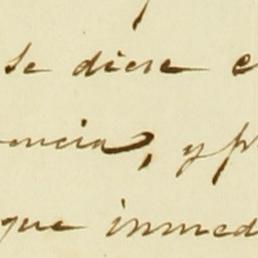 se diese e
encia, y p
que inmed